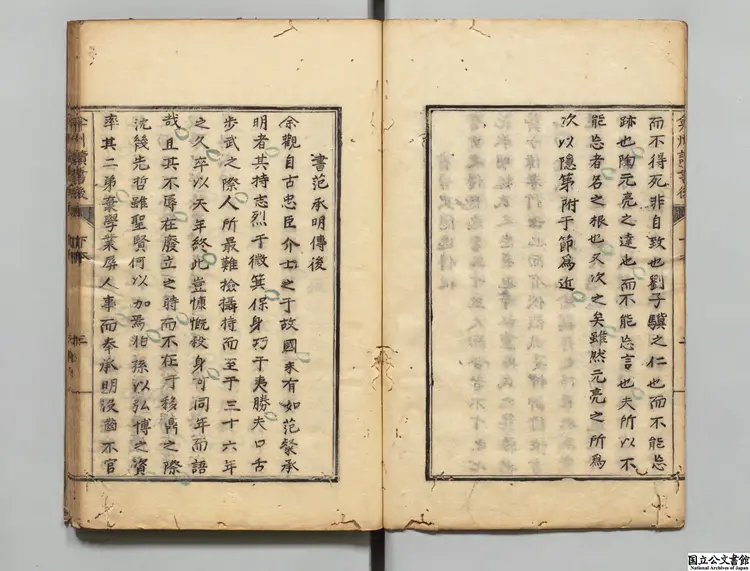 而不得死非自致也劉子驥之仁也而不能忘
跡也陶元亮之達也而不能忘言也夫所以不
能忘者名之根也又次之矣雖然元亮之所為
次以隱第附于節為近
書范承明傳後
余觀自古忠臣介士之于故國未有如范粲承
明者其持志烈于微箕保身巧于夷勝夫口舌
步武之際人所最難撿攝持而至于三十六年
之久卒以天年終此豈慷慨殺身可同年而語
哉且其不辱在廢立之時而不在于移鬲之際
沈幾先哲雖聖賢何以加焉伯孫以弘博之資
率其二弟棄學業屏人事而奉承明沒齒不官
国立公文書館
National Archives of Japan